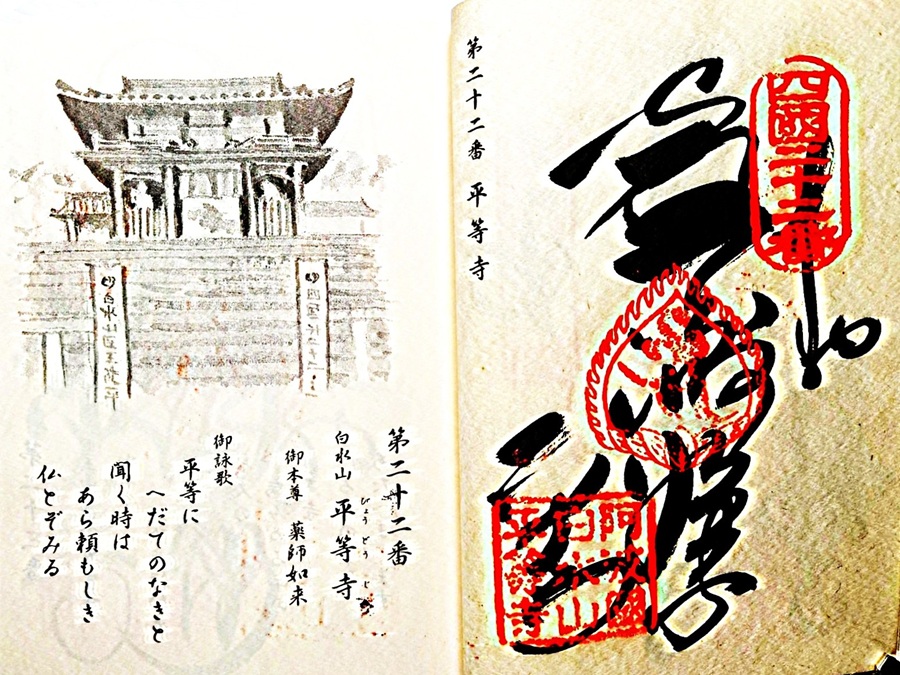 四國二十二番
阿波國
白水山
平等寺
第二十二番 平等寺
第二十二番
白水山 平等寺
びょうどうじ
御本尊 薬師如来
御詠歌
平等に
へだてのなきと
聞く時は
あら頼もしき
仏とぞみる